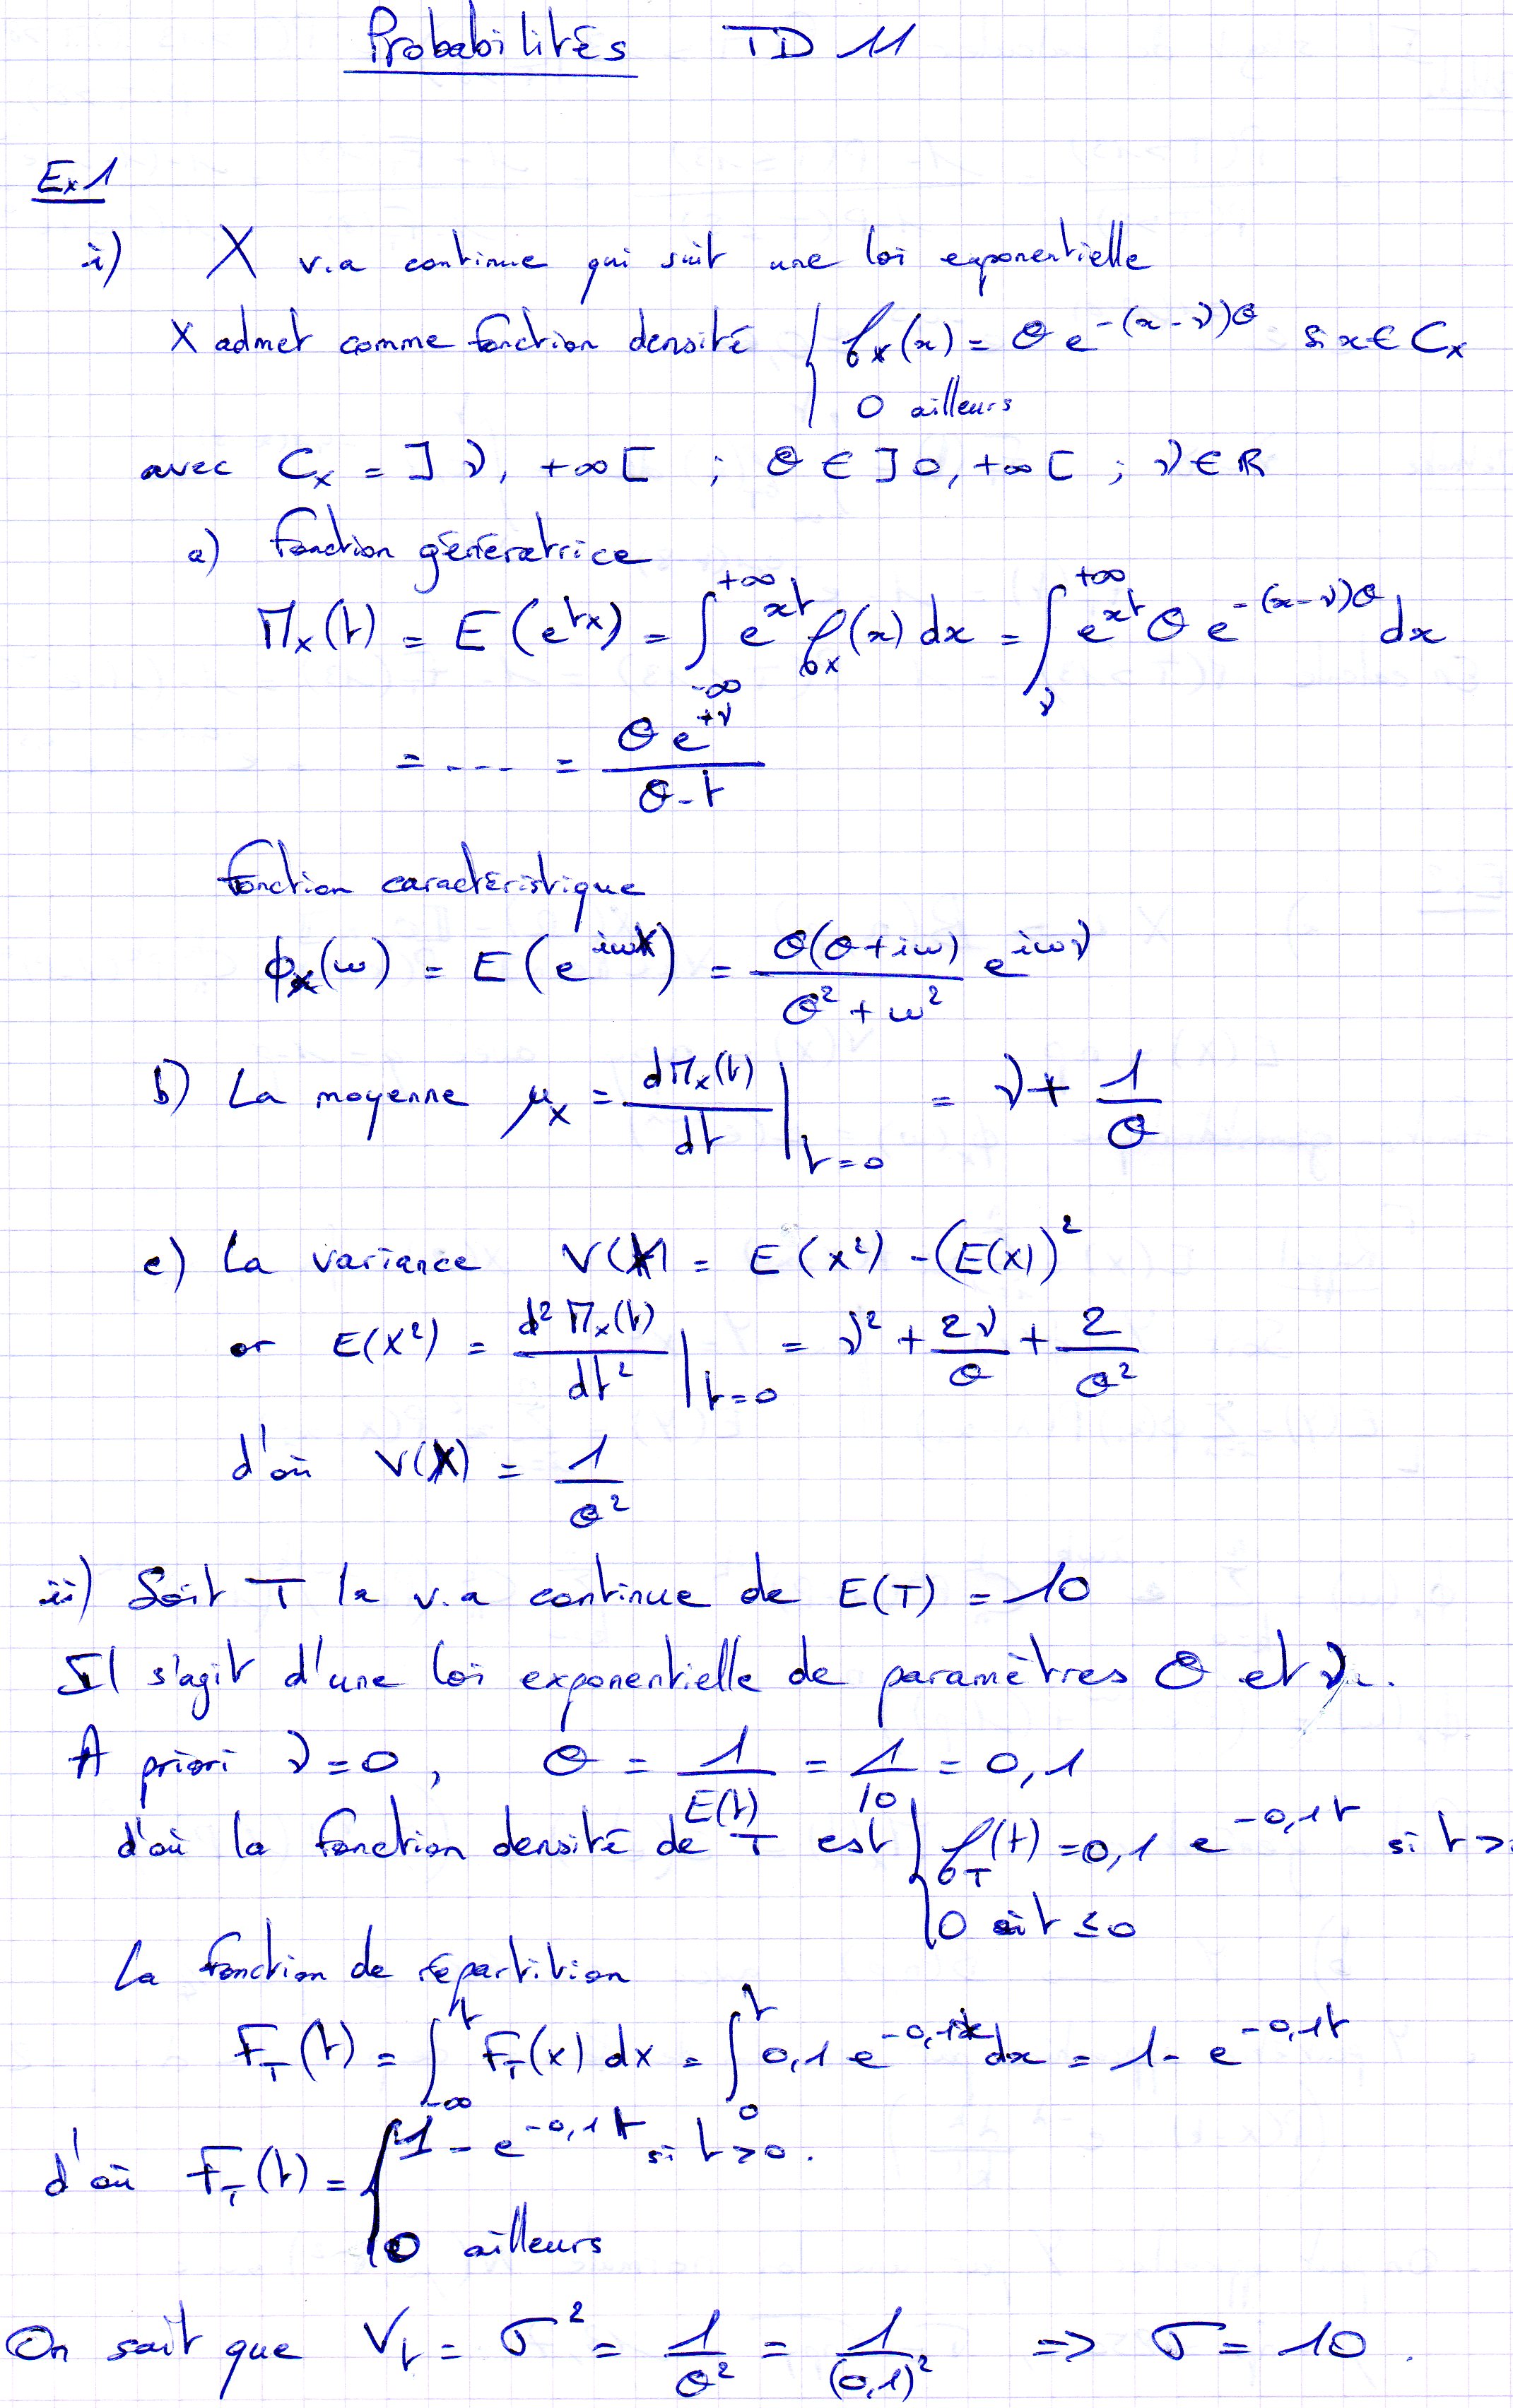 Probabilités TD 11
Ex1
i) X v.a continue qui suit une loi exponentielle
X admet comme fonction densité { f_X(x) = θ e^{-(x-ν)θ} si x ∈ C_X
0 ailleurs
avec C_X = ]ν, +∞[ ; θ ∈ ]0, +∞[ ; ν ∈ ℝ
a) fonction génératrice
M_X(t) = E(e^{tX}) = ∫_{-∞}^{+∞} e^{xt} f_X(x) dx = ∫_ν^{+∞} e^{xt} θ e^{-(x-ν)θ} dx
= .... = θ e^{tν} / (θ - t)
fonction caractéristique
ϕ_X(ω) = E(e^{iωX}) = θ(θ+iω) / (θ² + ω²) e^{iων}
b) La moyenne μ_X = dM_X(t)/dt |_{t=0} = ν + 1/θ
c) La variance V(X) = E(X²) - (E(X))²
or E(X²) = d²M_X(t)/dt² |_{t=0} = ν² + 2ν/θ + 2/θ²
d'où V(X) = 1/θ²
ii) Soit T la v.a continue de E(T) = 10
Il s'agit d'une loi exponentielle de paramètres θ et ν.
A priori ν = 0, θ = 1/E(t) = 1/10 = 0,1
d'où la fonction densité de T est { f_T(t) = 0,1 e^{-0,1t} si t >
0 si t ≤ 0
La fonction de répartition
F_T(t) = ∫_{-∞}^t F_T(x) dx = ∫_0^t 0,1 e^{-0,1x} dx = 1 - e^{-0,1t}
d'où F_T(t) = { 1 - e^{-0,1t} si t > 0.
0 ailleurs
On sait que V_t = σ² = 1/θ² = 1/(0,1)² => σ = 10.